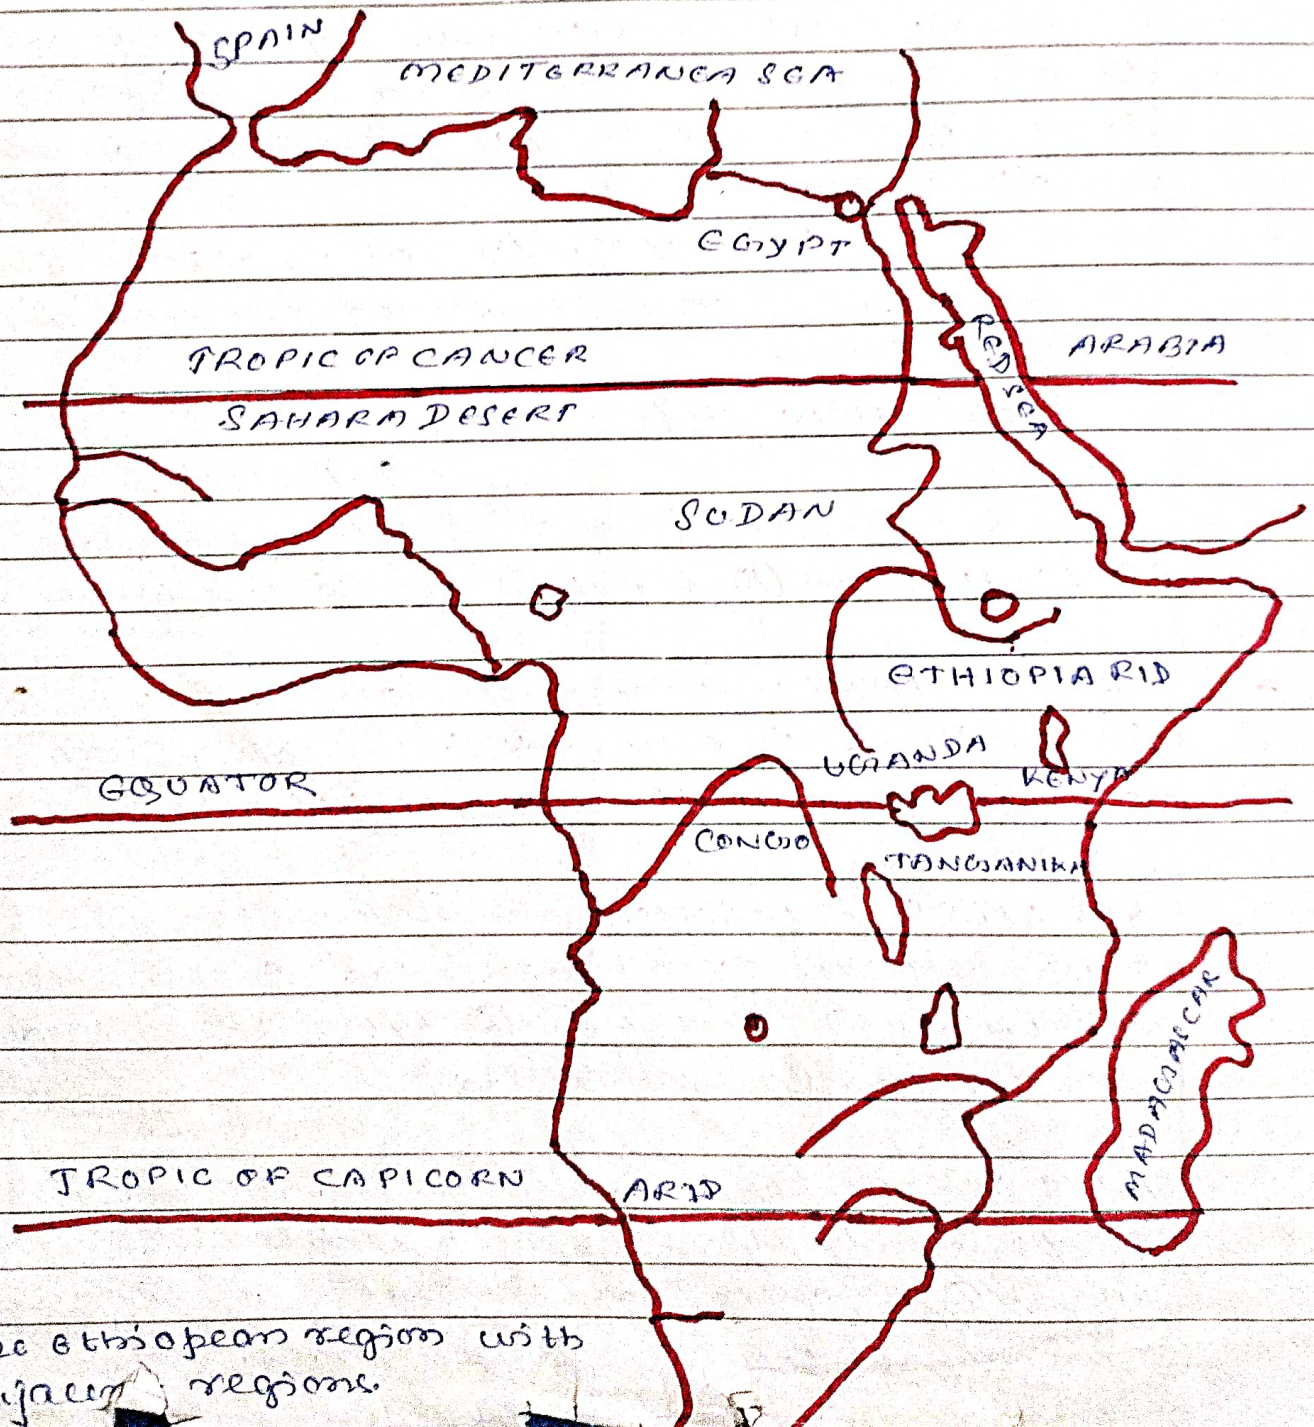 SPAIN
MEDITERRANEA SEA
EGYPT
TROPIC OF CANCER
RED SEA
ARABIA
SAHARA DESERT
SUDAN
ETHIOPIA RID
UGANDA
KENYA
EQUATOR
CONGO
TANGANIKA
MADAGASCAR
TROPIC OF CAPICORN
ARID
ethiopean region with
regions.